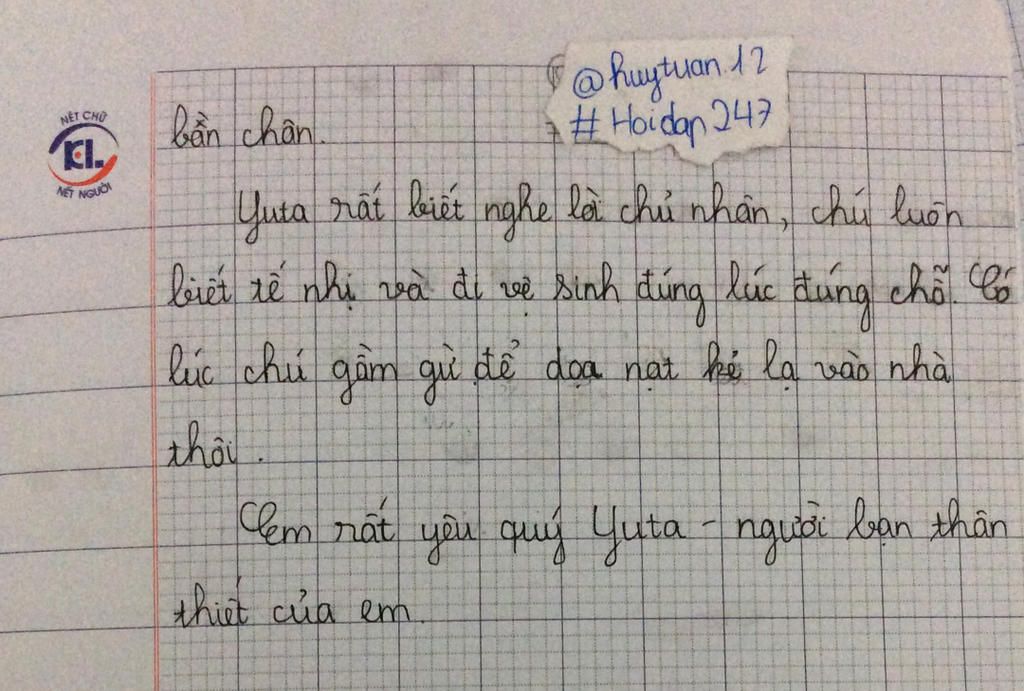 @huytuan.12
#Hoidap247
NÉT CHỮ
KL
NẾT NGƯỜI
bẩn chân.
Yuta rất biết nghe lời chủ nhân, chú luôn
biết tế nhị và đi vệ sinh đúng lúc đúng chỗ. Có
lúc chú gầm gừ để dọa nạt kẻ lạ vào nhà
thôi.
Em rất yêu quý Yuta - người bạn thân
thiết của em.